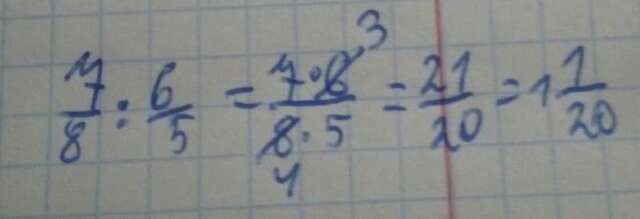 7/8 : 6/5 = 7·6 3/8·5 4 = 21/20 = 1 1/20